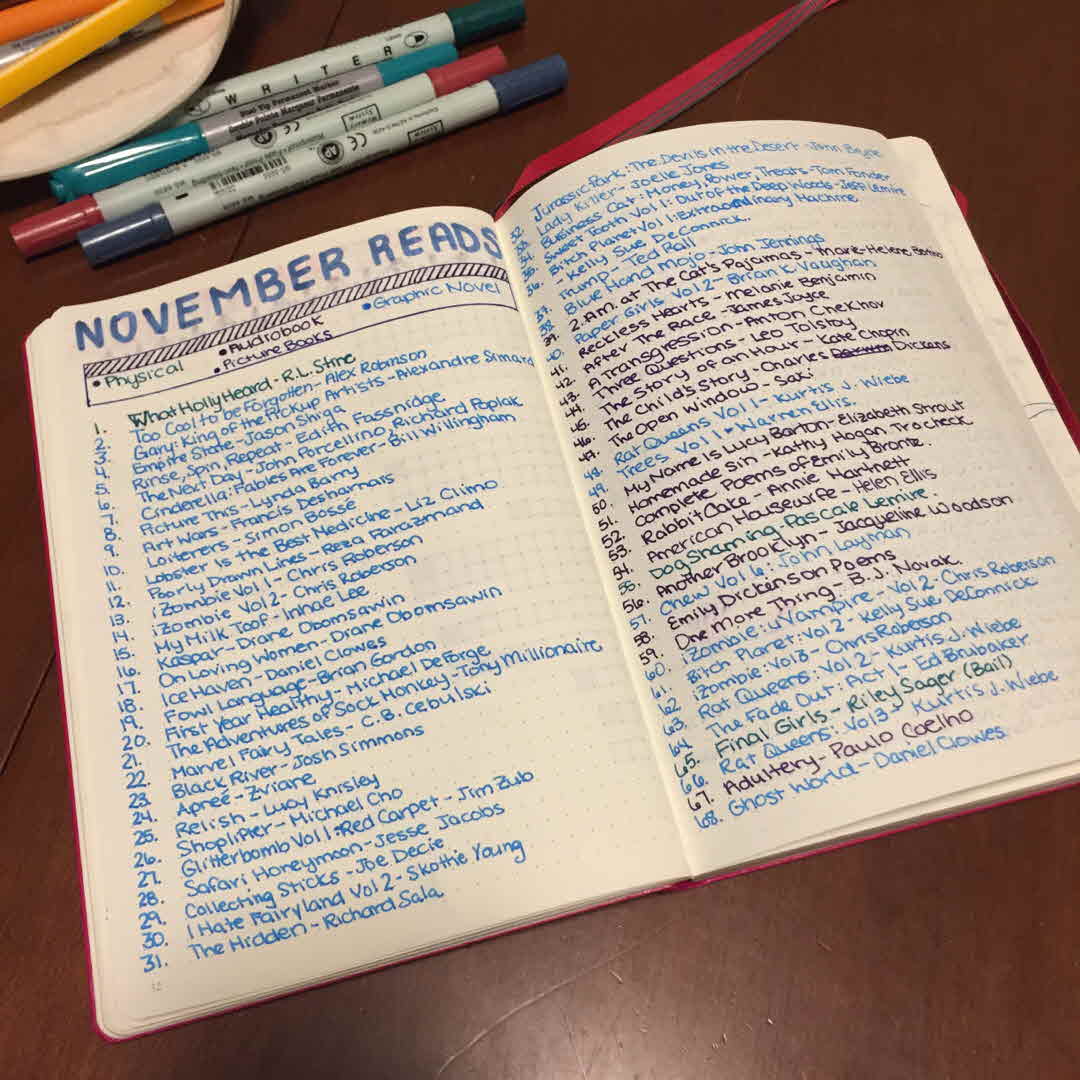 WRITER
Dual Tip Permanent Marker
Double Pointe Marqueur Permanente
NOVEMBER READS
• Audiobook
• Graphic Novel
• Physical
• Picture Books
1. What Holly Heard - R.L. Stine
2. Too Cool to be Forgotten - Alex Robinson
3. Gary: King of the Pickup Artists - Alexandre Simard
4. Empire State - Jason Shiga
5. Rinse, Spin, Repeat - Edith Fassnidge
6. The Next Day - John Porcellino, Richard Poplak
7. Cinderella: Fables Are Forever - Bill Willingham
8. Picture This - Lynda Barry
9. Art Wars - Francis Desharnais
10. Loiterers - Simon Bossé
11. Lobster Is the Best Medicine - Liz Climo
12. Poorly Drawn Lines - Reza Farazmand
13. iZombie Vol 1 - Chris Roberson
14. iZombie Vol 2 - Chris Roberson
15. My Milk Toof - Inhae Lee
16. Kaspar - Diane Obomsawin
17. On Loving Women - Diane Obomsawin
18. Ice Haven - Daniel Clowes
19. Fowl Language - Brian Gordon
20. First Year Healthy - Michael DeForge
21. The Adventures of Sock Monkey - Tony Millionaire
22. Marvel Fairy Tales - C.B. Cebulski
23. Black River - Josh Simmons
24. Apreé - Zviane
25. Relish - Lucy Knisley
26. Shoplifter - Michael Cho
27. Glitterbomb Vol 1: Red Carpet - Jim Zub
28. Safari Honeymoon - Jesse Jacobs
29. Collecting Sticks - Joe Decie
30. I Hate Fairyland Vol 2 - Skottie Young
31. The Hidden - Richard Sala
32 Jurassic Park: The Devils in the Desert - John Byrne
Lady Killer - Joelle Jones
Business Cat: Money, Power, Treats - Tom Fonder
Sweet Tooth Vol 1: Out of the Deep Woods - Jeff Lemire
Bitch Planet Vol 1: Extraordinary Machine
Kelly Sue DeConnick.
Trump - Ted Rall
Blue Hand Mojo - John Jennings
Paper Girls Vol 2 - Brian K Vaughan
2 A.M. at The Cat's Pajamas - Marie-Helene Bertino
Reckless Hearts - Melanie Benjamin
41. After The Race - James Joyce
42. A Transgression - Anton Chekhov
43. Three Questions - Leo Tolstoy
44. The Story of an Hour - Kate Chopin
45. The Child's Story - Charles Dickens
46. The Open Window - Saki
47. Rat Queens Vol 1 - Kurtis J. Wiebe
48. Trees Vol 1 - Warren Ellis.
49. My Name Is Lucy Barton - Elizabeth Strout
50. Homemade Sin - Kathy Hogan Trocheck
51. Complete Poems of Emily Bronte.
52. Rabbit Cake - Annie Hartnett
53. American Housewife - Helen Ellis
54. Dog Shaming - Pascale Lemire.
55. Another Brooklyn - Jacqueline Woodson
56. Chew Vol 6: John Layman
57. Emily Dickenson Poems
58. One More Thing - B.J. Novak.
59. iZombie: uVampire - Vol 2 - Chris Roberson
60. Bitch Planet: Vol 2 - Kelly Sue DeConnick.
61. iZombie: Vol 3 - Chris Roberson
62. Rat Queens: Vol 2 - Kurtis J. Wiebe
63. The Fade Out: Act 1 - Ed Brubaker
64. Final Girls - Riley Sager (Bail)
65. Rat Queens: Vol 3 - Kurtis J. Wiebe
66. Adultery - Paulo Coelho
67. Ghost World - Daniel Clowes
68.